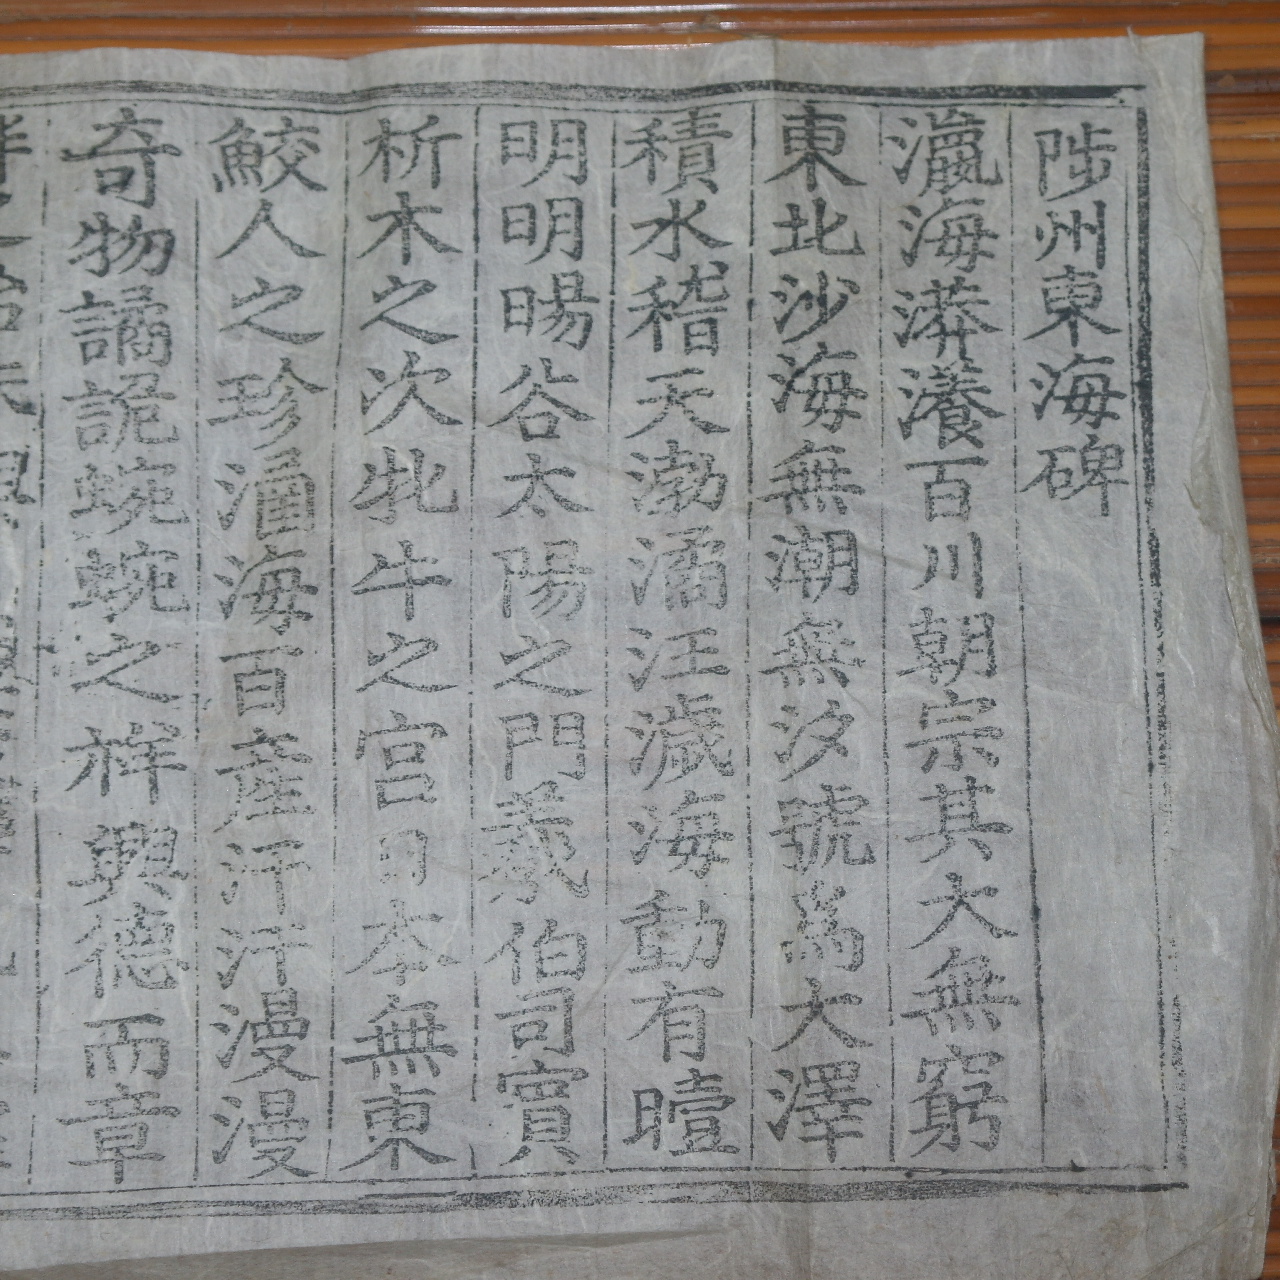 陟州東海碑
瀛海漭瀁百川朝宗其大無窮
東北沙海無潮無汐號爲大澤
積水稽天渤潏汪濊海動有曀
明明暘谷太陽之門羲伯司賓
析木之次牝牛之宮日本無東
鮫人之珍涵海百產汗汗漫漫
奇物譎詭蜿蜿之祥興德而章